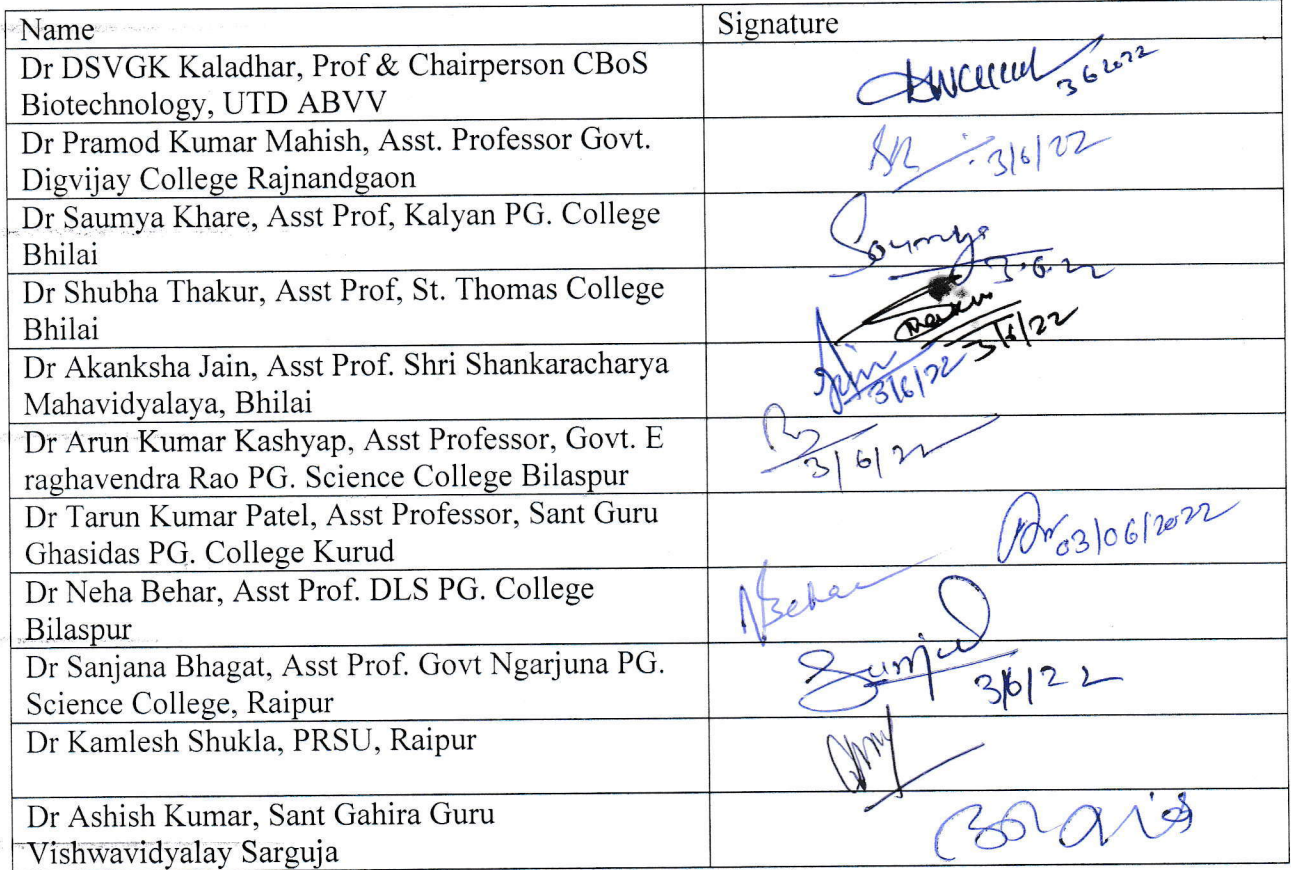 Name Signature
Dr DSVGK Kaladhar, Prof & Chairperson CBoS
Biotechnology, UTD ABVV
3 6 2022
Dr Pramod Kumar Mahish, Asst. Professor Govt.
Digvijay College Rajnandgaon
3/6/22
Dr Saumya Khare, Asst Prof, Kalyan PG. College
Bhilai
Soumya
3.6.22
Dr Shubha Thakur, Asst Prof, St. Thomas College
Bhilai
3/6/22
Dr Akanksha Jain, Asst Prof. Shri Shankaracharya
Mahavidyalaya, Bhilai
3/6/22
Dr Arun Kumar Kashyap, Asst Professor, Govt. E
raghavendra Rao PG. Science College Bilaspur
3/6/22
Dr Tarun Kumar Patel, Asst Professor, Sant Guru
Ghasidas PG. College Kurud
03/06/2022
Dr Neha Behar, Asst Prof. DLS PG. College
Bilaspur
NBehar
Dr Sanjana Bhagat, Asst Prof. Govt Ngarjuna PG.
Science College, Raipur
3/6/22
Dr Kamlesh Shukla, PRSU, Raipur
Dr Ashish Kumar, Sant Gahira Guru
Vishwavidyalay Sarguja